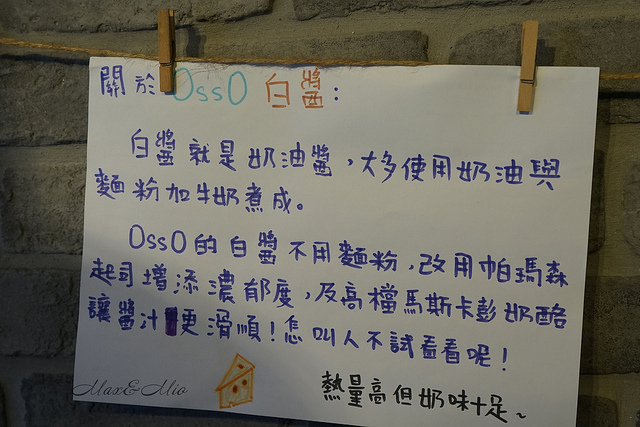 關於 OssO 白醬:
白醬就是奶油醬,大多使用奶油與
麵粉加牛奶煮成。
OssO的白醬不用麵粉,改用帕瑪森
起司增添濃郁度,及高檔馬斯卡彭奶酪
讓醬汁更滑順!怎叫人不試看看呢!
熱量高但奶味十足~
Max&Mio